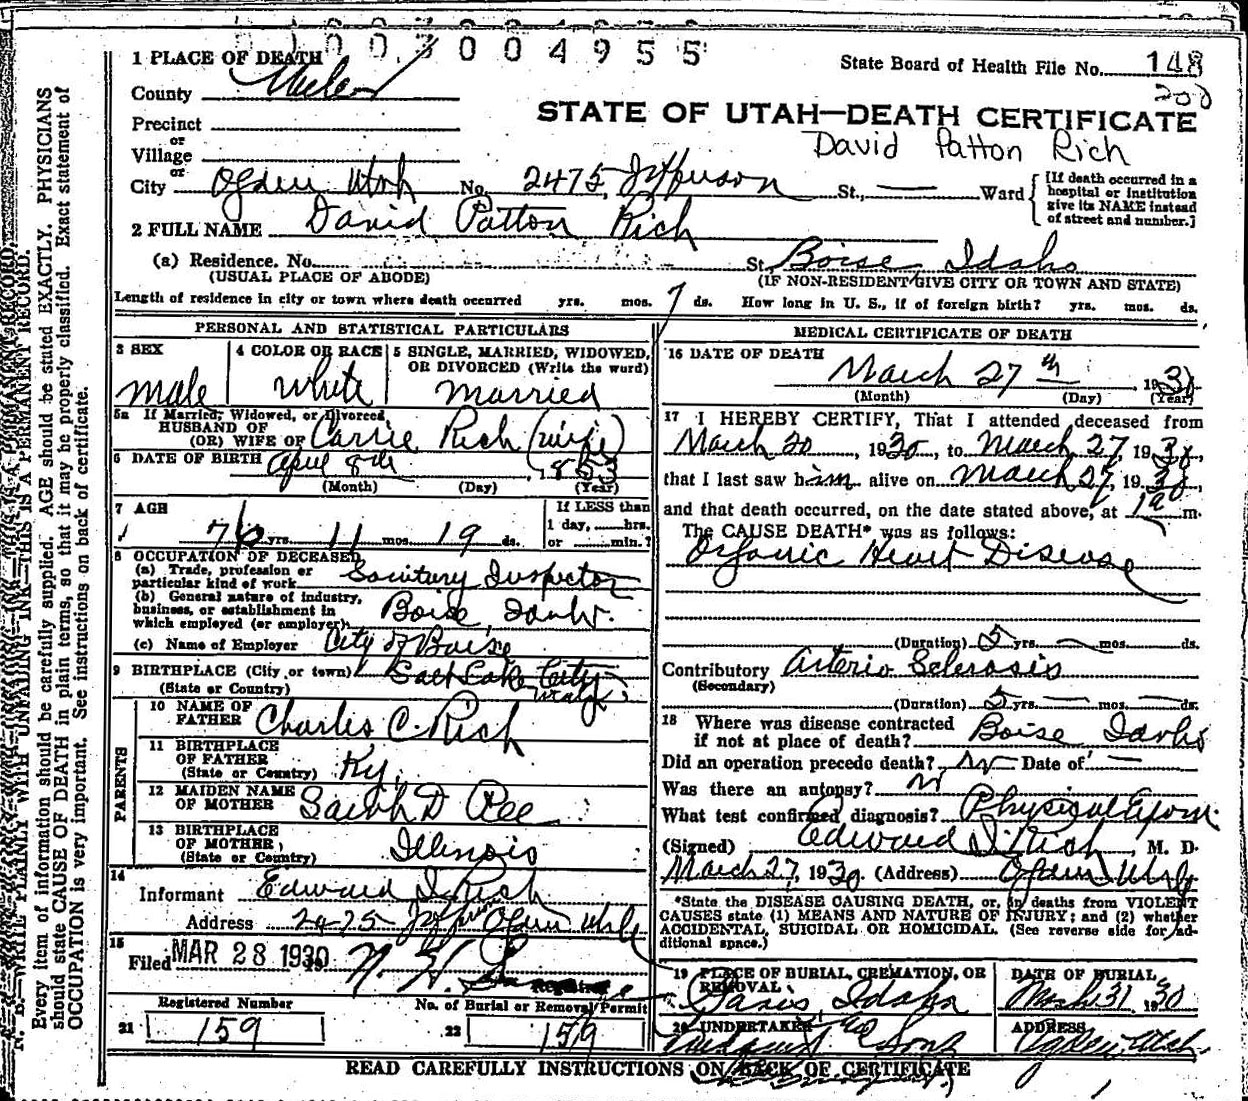 0 1 0 0 3 0 0 4 9 5 5
1 PLACE OF DEATH
State Board of Health File No. 148
200
County Weber
STATE OF UTAH—DEATH CERTIFICATE
Precinct
David Patton Rich
or
Village
or
City Ogden Utah No. 2475 Jefferson St., — Ward
[If death occurred in a hospital or institution give its NAME instead of street and number.]
2 FULL NAME David Patton Rich
(a) Residence. No. St. Boise, Idaho
(USUAL PLACE OF ABODE) (IF NON-RESIDENT GIVE CITY OR TOWN AND STATE)
Length of residence in city or town where death occurred yrs. mos. 7 ds. How long in U. S., if of foreign birth? yrs. mos. ds.
PERSONAL AND STATISTICAL PARTICULARS
3 SEX
male
4 COLOR OR RACE
white
5 SINGLE, MARRIED, WIDOWED, OR DIVORCED (Write the word)
married
5a If Married, Widowed, or Divorced
HUSBAND OF
(OR) WIFE OF Carrie Rich (wife)
6 DATE OF BIRTH April 8th, 1853
(Month) (Day) (Year)
7 AGE
76 yrs. 11 mos. 19 ds.
If LESS than
1 day, hrs.
or min.?
8 OCCUPATION OF DECEASED
(a) Trade, profession or
particular kind of work Sanitary Inspector
(b) General nature of industry,
business, or establishment in
which employed (or employer) Boise, Idaho.
(c) Name of Employer City of Boise
9 BIRTHPLACE (City or town) Salt Lake City
(State or Country) Utah
PARENTS
10 NAME OF
FATHER Charles C. Rich
11 BIRTHPLACE
OF FATHER
(State or Country) Ky.
12 MAIDEN NAME
OF MOTHER Sarah D Pea
13 BIRTHPLACE
OF MOTHER
(State or Country) Illinois
14
Informant Edward I. Rich
Address 2475 Jefferson Ogden Utah
15
Filed MAR 28 1930
Registrar
Registered Number No. of Burial or Removal Permit
21 159 22 159
MEDICAL CERTIFICATE OF DEATH
16 DATE OF DEATH
March 27th, 1930
(Month) (Day) (Year)
17 I HEREBY CERTIFY, That I attended deceased from
March 20, 1930, to March 27, 1930,
that I last saw him alive on March 27, 1930,
and that death occurred, on the date stated above, at m.
The CAUSE DEATH* was as follows:
Organic Heart Disease
(Duration) 5 yrs. — mos. ds.
Contributory Arterio Sclerosis
(Secondary)
(Duration) 5 yrs. — mos. — ds.
18 Where was disease contracted
if not at place of death? Boise, Idaho
Did an operation precede death? No Date of —
Was there an autopsy? No
What test confirmed diagnosis? Physical Exam.
(Signed) Edward I. Rich, M. D.
March 27, 1930. (Address) Ogden Utah
*State the DISEASE CAUSING DEATH, or, in deaths from VIOLENT
CAUSES state (1) MEANS AND NATURE OF INJURY; and (2) whether
ACCIDENTAL, SUICIDAL OR HOMICIDAL. (See reverse side for additional space.)
19 PLACE OF BURIAL, CREMATION, OR
REMOVAL
Paris, Idaho
DATE OF BURIAL
March 31 1930
20 UNDERTAKER
& Sons
ADDRESS
Ogden, Utah.
READ CAREFULLY INSTRUCTIONS ON BACK OF CERTIFICATE
N. B.—WRITE PLAINLY WITH UNFADING INK—THIS IS A PERMANENT RECORD.
Every item of information should be carefully supplied. AGE should be stated EXACTLY. PHYSICIANS
should state CAUSE OF DEATH in plain terms, so that it may be properly classified. Exact statement of
OCCUPATION is very important. See instructions on back of certificate.